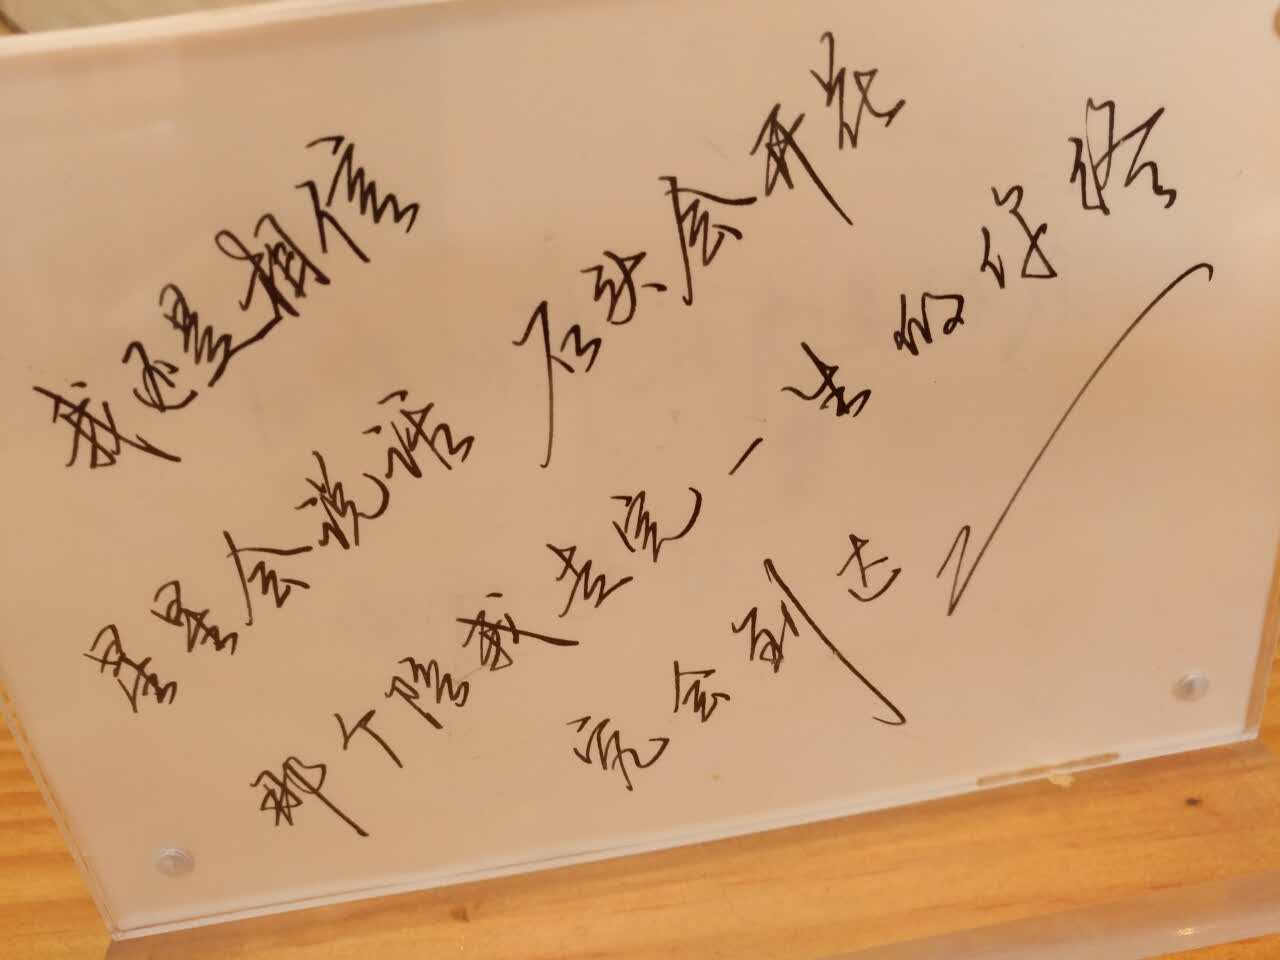 我还是相信
星星会说话 石头会开花
那个陪我走完一生的伴侣
完会到达